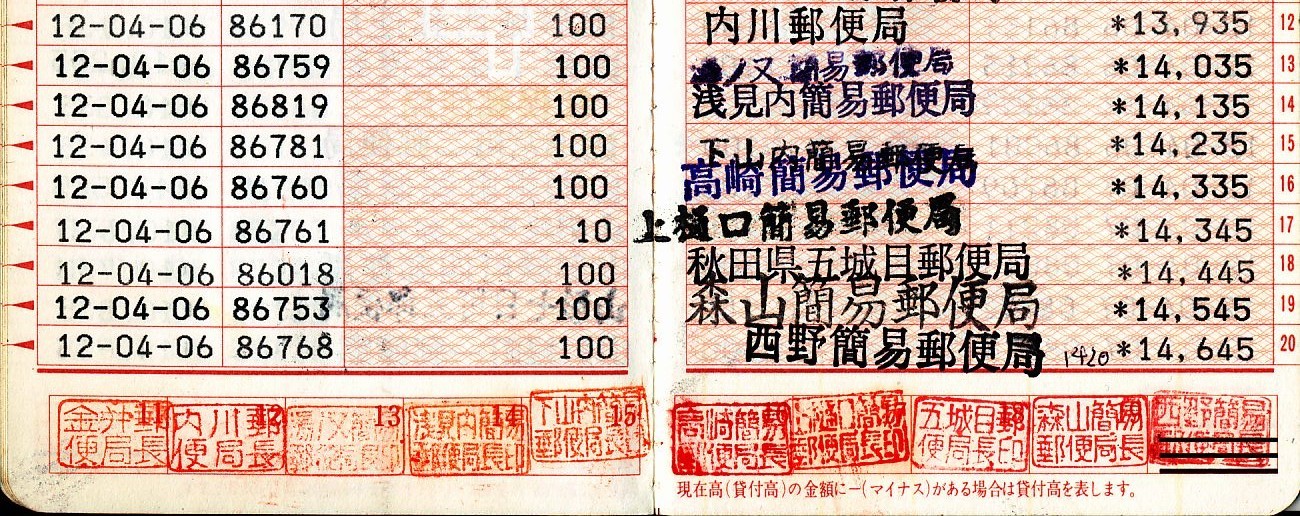 12-04-06 86170 100 内川郵便局 *13,935 12
12-04-06 86759 100 ノ又簡易郵便局 *14,035 13
12-04-06 86819 100 浅見内簡易郵便局 *14,135 14
12-04-06 86781 100 下山内簡易郵便局 *14,235 15
12-04-06 86760 100 高崎簡易郵便局 *14,335 16
12-04-06 86761 10 上樋口簡易郵便局 *14,345 17
12-04-06 86018 100 秋田県五城目郵便局 *14,445 18
12-04-06 86753 100 森山簡易郵便局 *14,545 19
12-04-06 86768 100 西野簡易郵便局 1420 *14,645 20
11 12 13 14 15
内川郵便局長
浅見内簡易郵便局長印
下山内簡易郵便局長
高崎簡易郵便局長
五城目郵便局長印
森山簡易郵便局長
西野簡易郵便局長
現在高(貸付高)の金額に-(マイナス)がある場合は貸付高を表します。